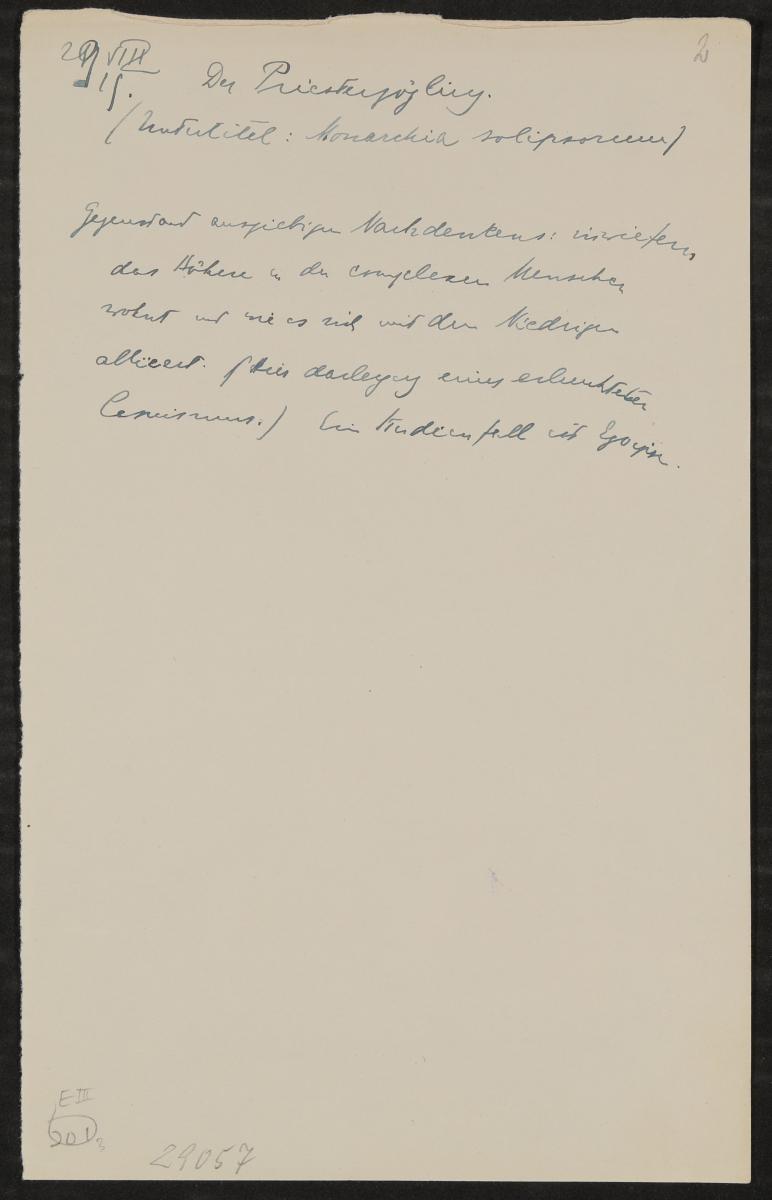 29 VIII 2
15. Der Priesterzögling.
(Untertitel: Monarchia solipsorum)
Gegenstand ausgiebigen Nachdenkens: inwiefern
das Höhere in den complexen Menschen
wohnt und wie es sich mit dem Niedrigen
alliiert. (Hier darlegung eines erleuchteten
Cesuismus.) Ein Studienfall ist
E III
201, 3
29057